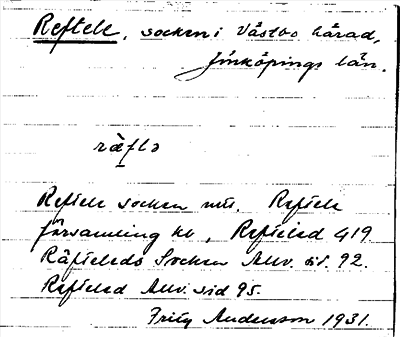 Reftele, socken i Västbo härad,
Jönköpings län.
räftə
Reftele socken mtl. Reftele
församling kb, Refteled 419.
Räfteleds Socken Allv. sid. 92.
Refteled Allv. sid 95.
Fritz Andersson 1931.